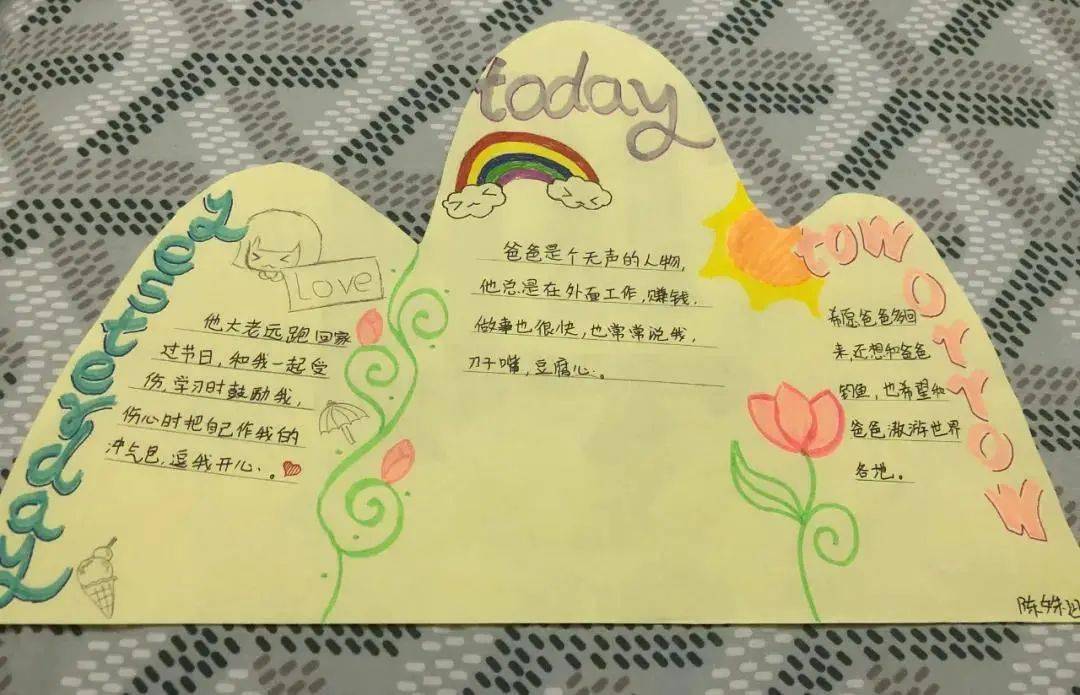 Yesterday
Love
他大老远跑回家
过节日，和我一起受
伤，学习时鼓励我，
伤心时把自己作我的
冲气包，逗我开心.。
today
爸爸是个无声的人物，
他总是在外面工作，赚钱，
做事也很快，也常常说我，
刀子嘴，豆腐心.。
toworrow
希愿爸爸多回
来，还想和爸爸
钓鱼，也希望和
爸爸遨游世界
各地。
陈姝